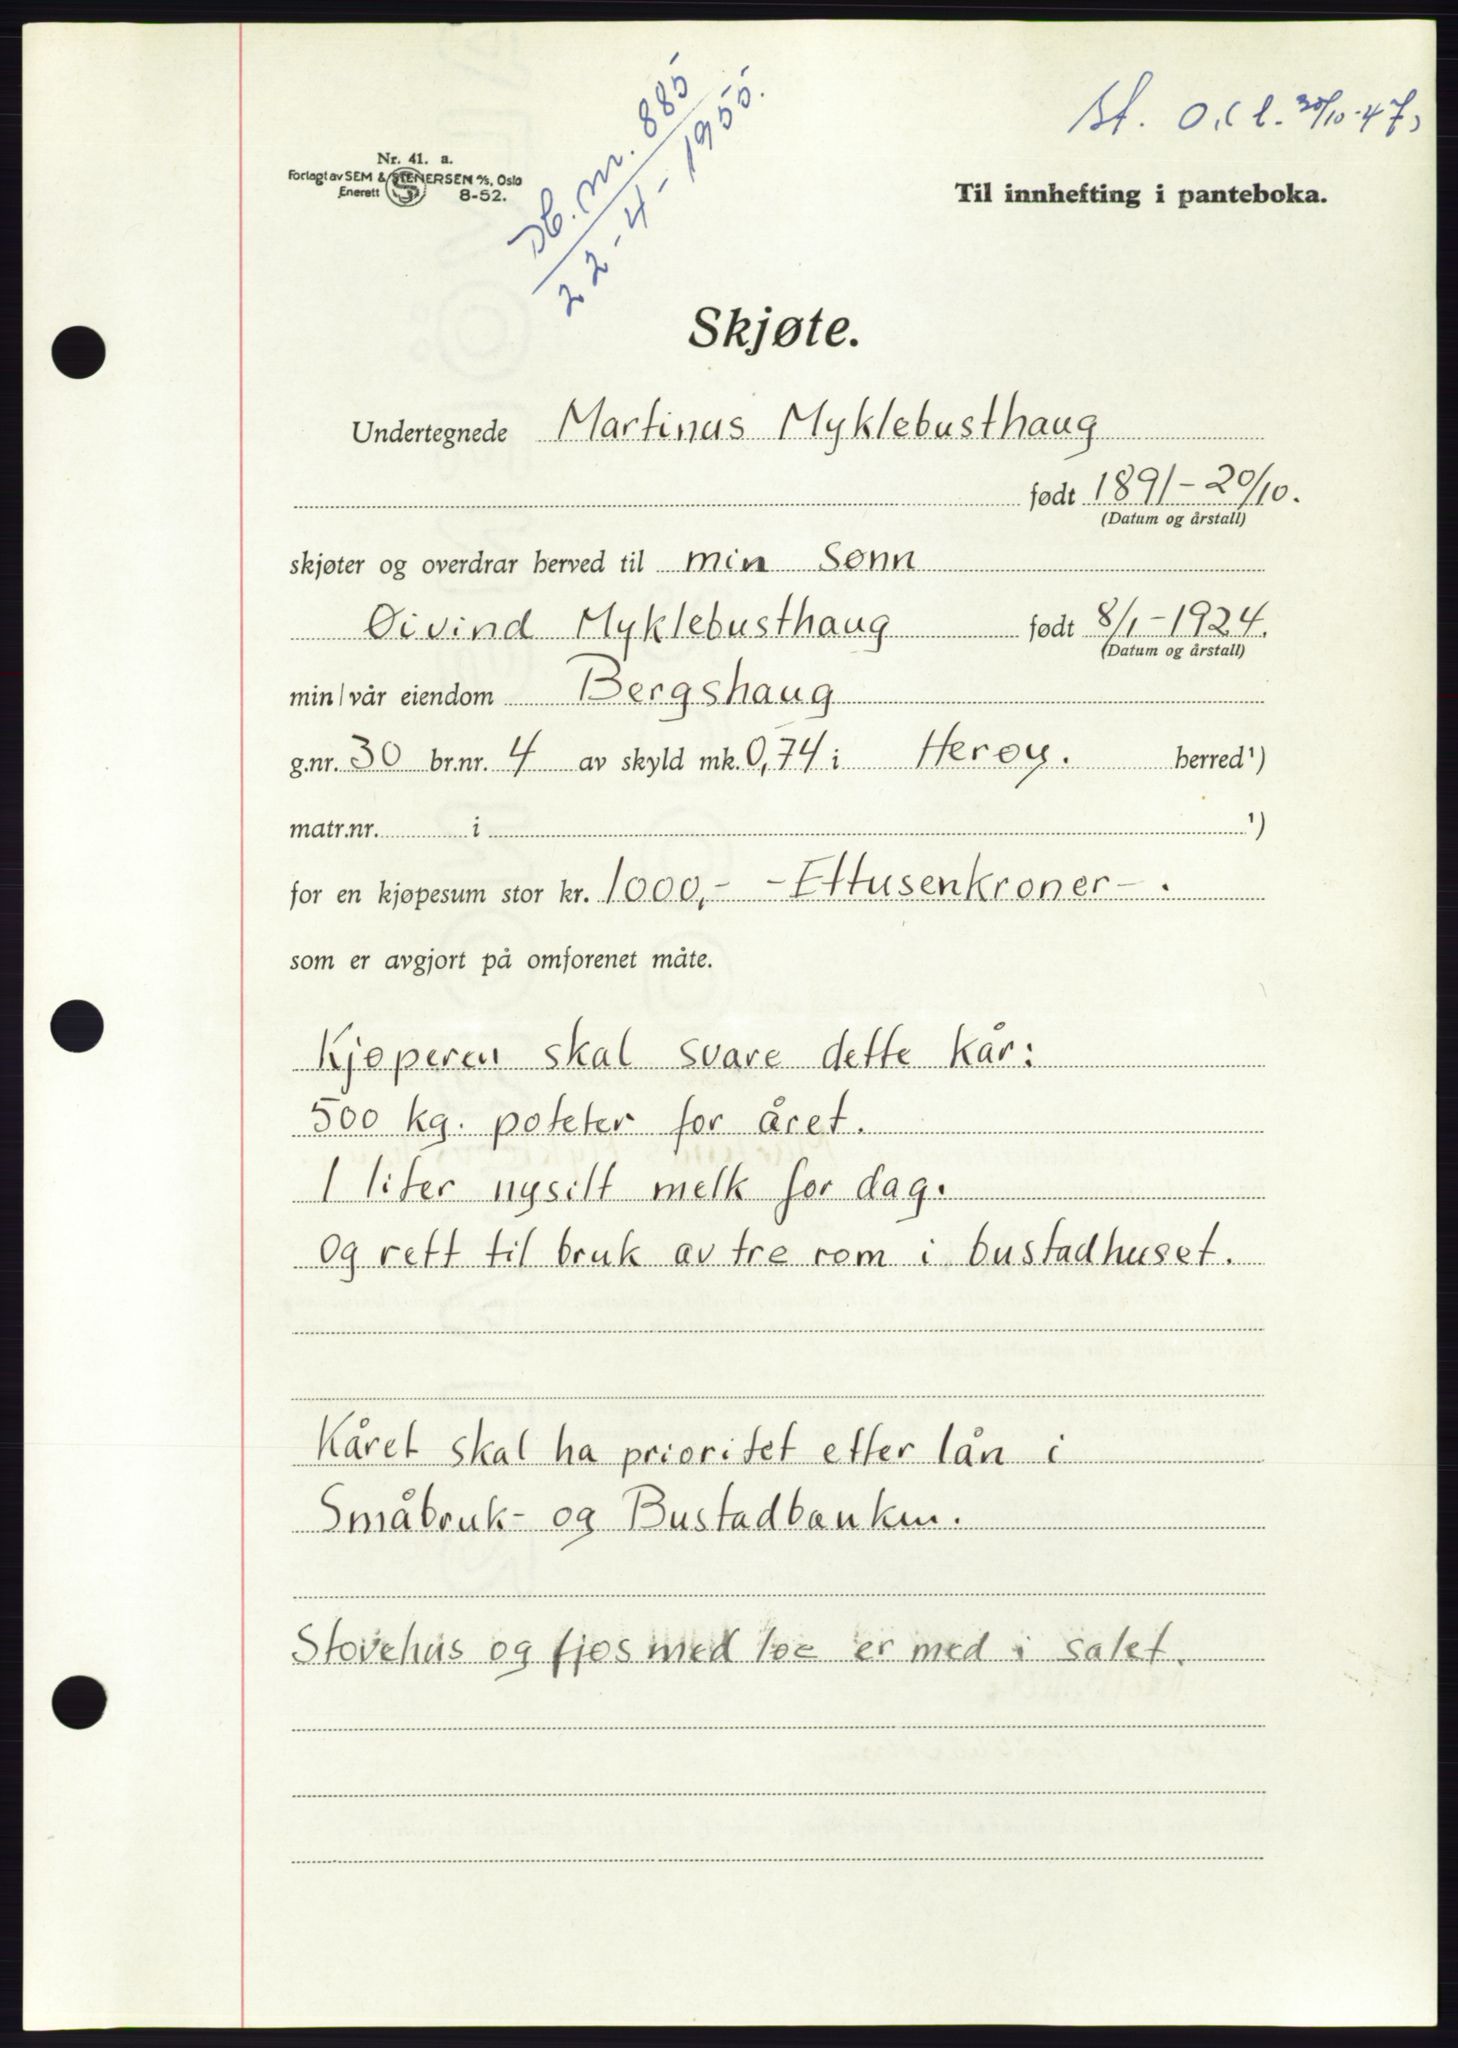 Db. nr. 885
22-4-1955.
Nr. 41. a.
Forlagt av SEM & STENERSEN A/S, Oslo
Enerett 8-52.
Til innhefting i panteboka.
Skjøte.
Undertegnede Martinus Myklebusthaug
født 1891-20/10.
(Datum og årstall)
skjøter og overdrar herved til min sønn
Øivind Myklebusthaug født 8/1-1924.
(Datum og årstall)
min/vår eiendom Bergshaug
g.nr. 30 br.nr. 4 av skyld mk. 0,74 i Herøy. herred¹)
matr.nr. i ¹)
for en kjøpesum stor kr. 1000,- -Ettusenkroner- .
som er avgjort på omforenet måte.
Kjøperen skal svare dette kår:
500 kg. poteter for året.
1 liter nysilt melk for dag.
Og rett til bruk av tre rom i bustadhuset.
Kåret skal ha prioritet etter lån i
Småbruk- og Bustadbanken.
Stovehus og fjøs med løe er med i salet.